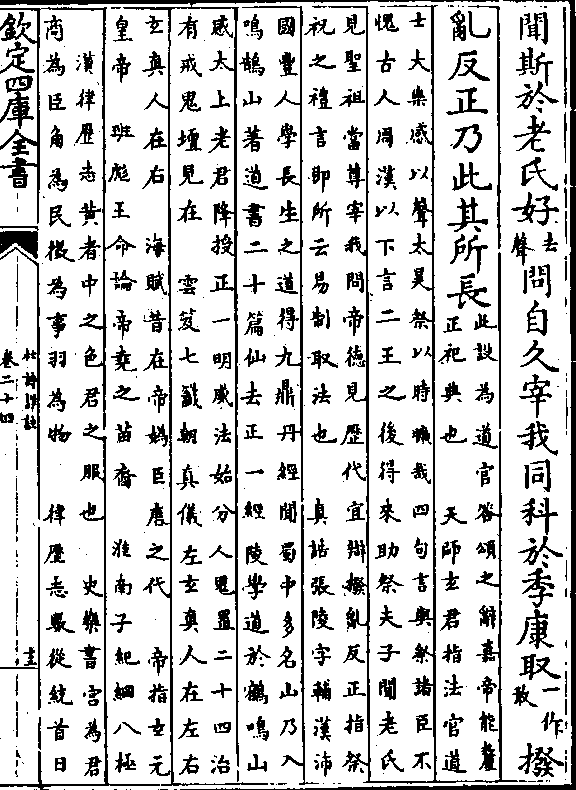 聞斯於老氏好去聲問自久宰我同科於季康取一作敢撥
亂反正乃此其所長此設為道官答頌之辭嘉帝能釐
正祀典也 天師玄君指法官道
士大樂感以聲太昊祭以時曠哉四句言與祭諸臣不
愧古人周漢以下言二王之後得來助祭夫子聞老氏
見聖祖當尊宰我問帝德見歴代宜辯撥亂反正指祭
祝之禮言即所云易制取法也 真誥張陵字輔漢沛
國豐人學長生之道得九鼎丹經聞蜀中多名山乃入
鳴鵠山著道書二十篇仙去正一經陵學道於鶴鳴山
感太上老君降授正一明威法始分人鬼置二十四治
有戒鬼壇見在 雲笈七籖朝真儀左玄真人在左右
玄真人在右 海賦昔在帝媯臣唐之代 帝指玄元
皇帝 班彪王命論帝堯之苗裔 淮南子紀綱八極
漢律歴志黄者中之色君之服也 史樂書宫為君
商為臣角為民徵為事羽為物 律歴志數從統首日
欽定四庫全書
杜詩詳註
卷二十四
十三